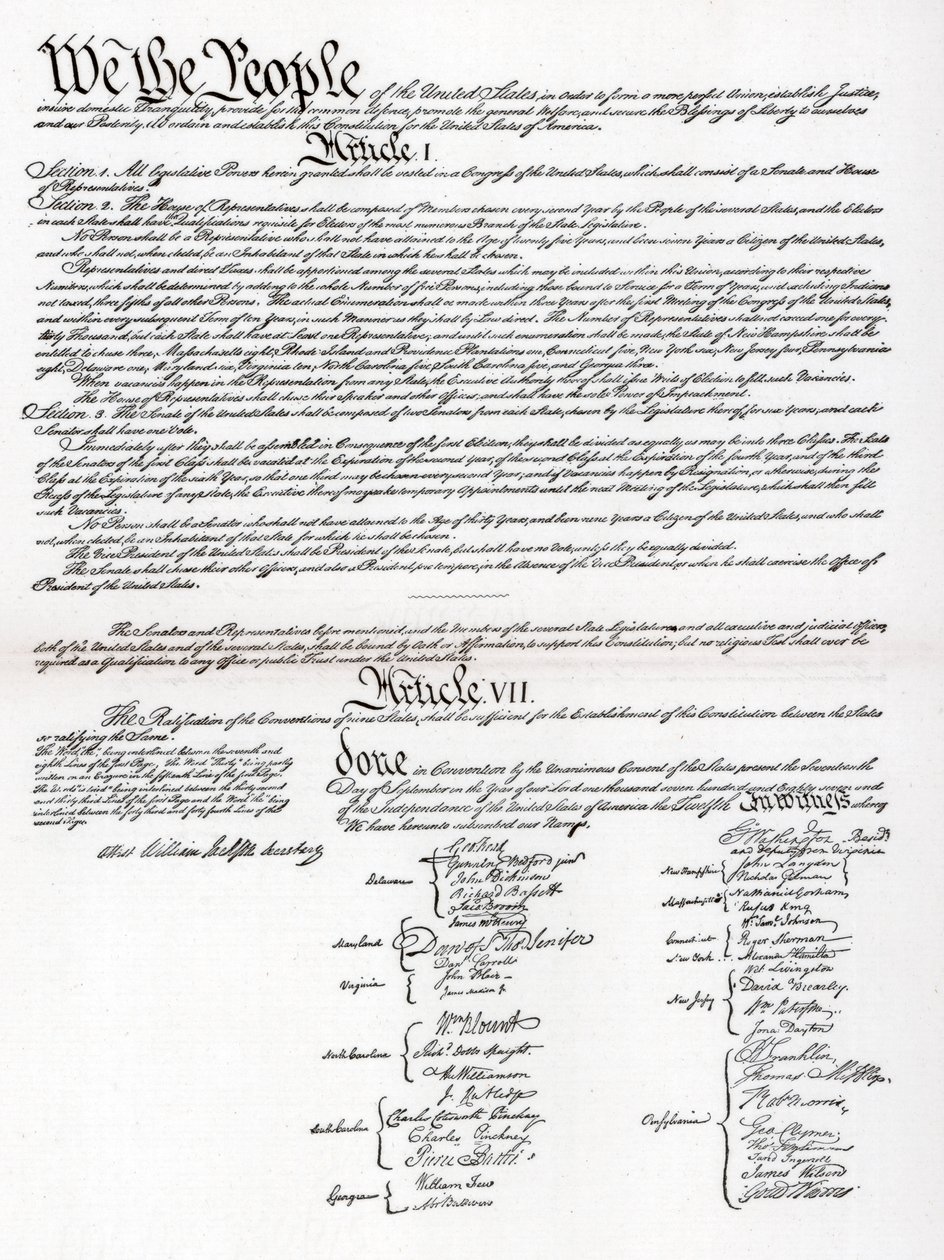 We the People of the United States, in order to form a more perfect Union, establish Justice,
insure domestic Tranquility, provide for the common defence, promote the general Welfare, and secure the Blessings of Liberty to ourselves
and our Posterity, do ordain and establish this Constitution for the United States of America.
Article I.
Section 1. All legislative Powers herein granted shall be vested in a Congress of the United States, which shall consist of a Senate and House
of Representatives.
Section 2. The House of Representatives shall be composed of Members chosen every second Year by the People of the several States, and the Electors
in each State shall have the Qualifications requisite for Electors of the most numerous Branch of the State Legislature.
No Person shall be a Representative who shall not have attained to the Age of twenty five Years, and been seven Years a Citizen of the United States,
and who shall not, when elected, be an Inhabitant of that State in which he shall be chosen.
Representatives and direct Taxes shall be apportioned among the several States which may be included within this Union, according to their respective
Numbers, which shall be determined by adding to the whole Number of free Persons, including those bound to Service for a Term of Years, and excluding Indians
not taxed, three fifths of all other Persons. The actual Enumeration shall be made within three Years after the first Meeting of the Congress of the United States,
and within every subsequent Term of ten Years, in such Manner as they shall by Law direct. The Number of Representatives shall not exceed one for every
thirty Thousand, but each State shall have at Least one Representative; and until such enumeration shall be made, the State of New Hampshire shall be
entitled to chuse three, Massachusetts eight, Rhode Island and Providence Plantations one, Connecticut five, New York six, New Jersey four, Pennsylvania
eight, Delaware one, Maryland six, Virginia ten, North Carolina five, South Carolina five, and Georgia three.
When vacancies happen in the Representation from any State, the Executive Authority thereof shall issue Writs of Election to fill such Vacancies.
The House of Representatives shall chuse their Speaker and other Officers; and shall have the sole Power of Impeachment.
Section 3. The Senate of the United States shall be composed of two Senators from each State, chosen by the Legislature thereof, for six Years; and each
Senator shall have one Vote.
Immediately after they shall be assembled in Consequence of the first Election, they shall be divided as equally as may be into three Classes. The Seats
of the Senators of the first Class shall be vacated at the Expiration of the second Year, of the second Class at the Expiration of the fourth Year, and of the third
Class at the Expiration of the sixth Year, so that one third may be chosen every second Year; and if Vacancies happen by Resignation, or otherwise, during the
Recess of the Legislature of any State, the Executive thereof may make temporary Appointments until the next Meeting of the Legislature, which shall then fill
such Vacancies.
No Person shall be a Senator who shall not have attained to the Age of thirty Years, and been nine Years a Citizen of the United States, and who shall
not, when elected, be an Inhabitant of that State for which he shall be chosen.
The Vice President of the United States shall be President of the Senate, but shall have no Vote, unless they be equally divided.
The Senate shall chuse their other Officers, and also a President pro tempore, in the Absence of the Vice President, or when he shall exercise the Office of
President of the United States.
The Senators and Representatives before mentioned, and the Members of the several State Legislatures, and all executive and judicial Officers,
both of the United States and of the several States, shall be bound by Oath or Affirmation, to support this Constitution; but no religious Test shall ever be
required as a Qualification to any Office or public Trust under the United States.
Article. VII.
The Ratification of the Conventions of nine States, shall be sufficient for the Establishment of this Constitution between the States
so ratifying the Same.
The Word, "the," being interlined between the seventh and
eighth Lines of the first Page, The Word "Thirty" being partly
written on an Erazure in the fifteenth Line of the first Page,
The Words "is tried" being interlined between the thirty second
and thirty third Lines of the first Page and the Word "the" being
interlined between the forty third and forty fourth Lines of the
second Page.
Attest William Jackson Secretary
done in Convention by the Unanimous Consent of the States present the Seventeenth
Day of September in the Year of our Lord one thousand seven hundred and Eighty seven and
of the Independance of the United States of America the Twelfth In Witness whereof
We have hereunto subscribed our Names,
Delaware
Geo: Read
Gunning Bedford jun
John Dickinson
Richard Bassett
Jaco: Broom
Maryland
James McHenry
Dan of St Thos. Jenifer
Danl Carroll
Virginia
John Blair
James Madison Jr
North Carolina
Wm Blount
Richd. Dobbs Spaight.
Hu Williamson
South Carolina
J. Rutledge
Charles Cotesworth Pinckney
Charles Pinckney
Pierce Butler.
Georgia
William Few
Abr Baldwin
Go. Washington Presidt
and deputy from Virginia
New Hampshire
John Langdon
Nicholas Gilman
Massachusetts
Nathaniel Gorham
Rufus King
Connecticut
Wm. Saml. Johnson
Roger Sherman
New York
Alexander Hamilton
New Jersey
Wil: Livingston
David Brearley.
Wm. Paterson.
Jona: Dayton
Pensylvania
B Franklin
Thomas Mifflin
Robt Morris
Geo. Clymer
Thos. FitzSimons
Jared Ingersoll
James Wilson
Gouv Morris